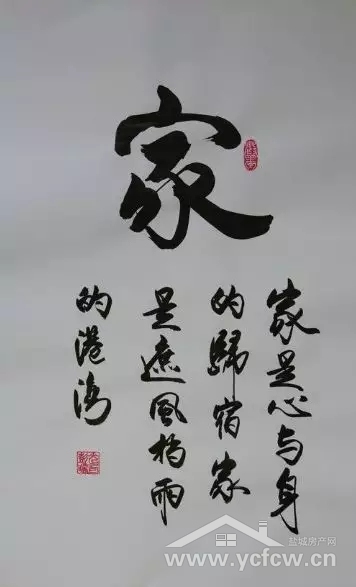 家
家是心与身
的歸宿家
是遮風挡雨
的港湾
盐城房产网
www.ycfcw.cn